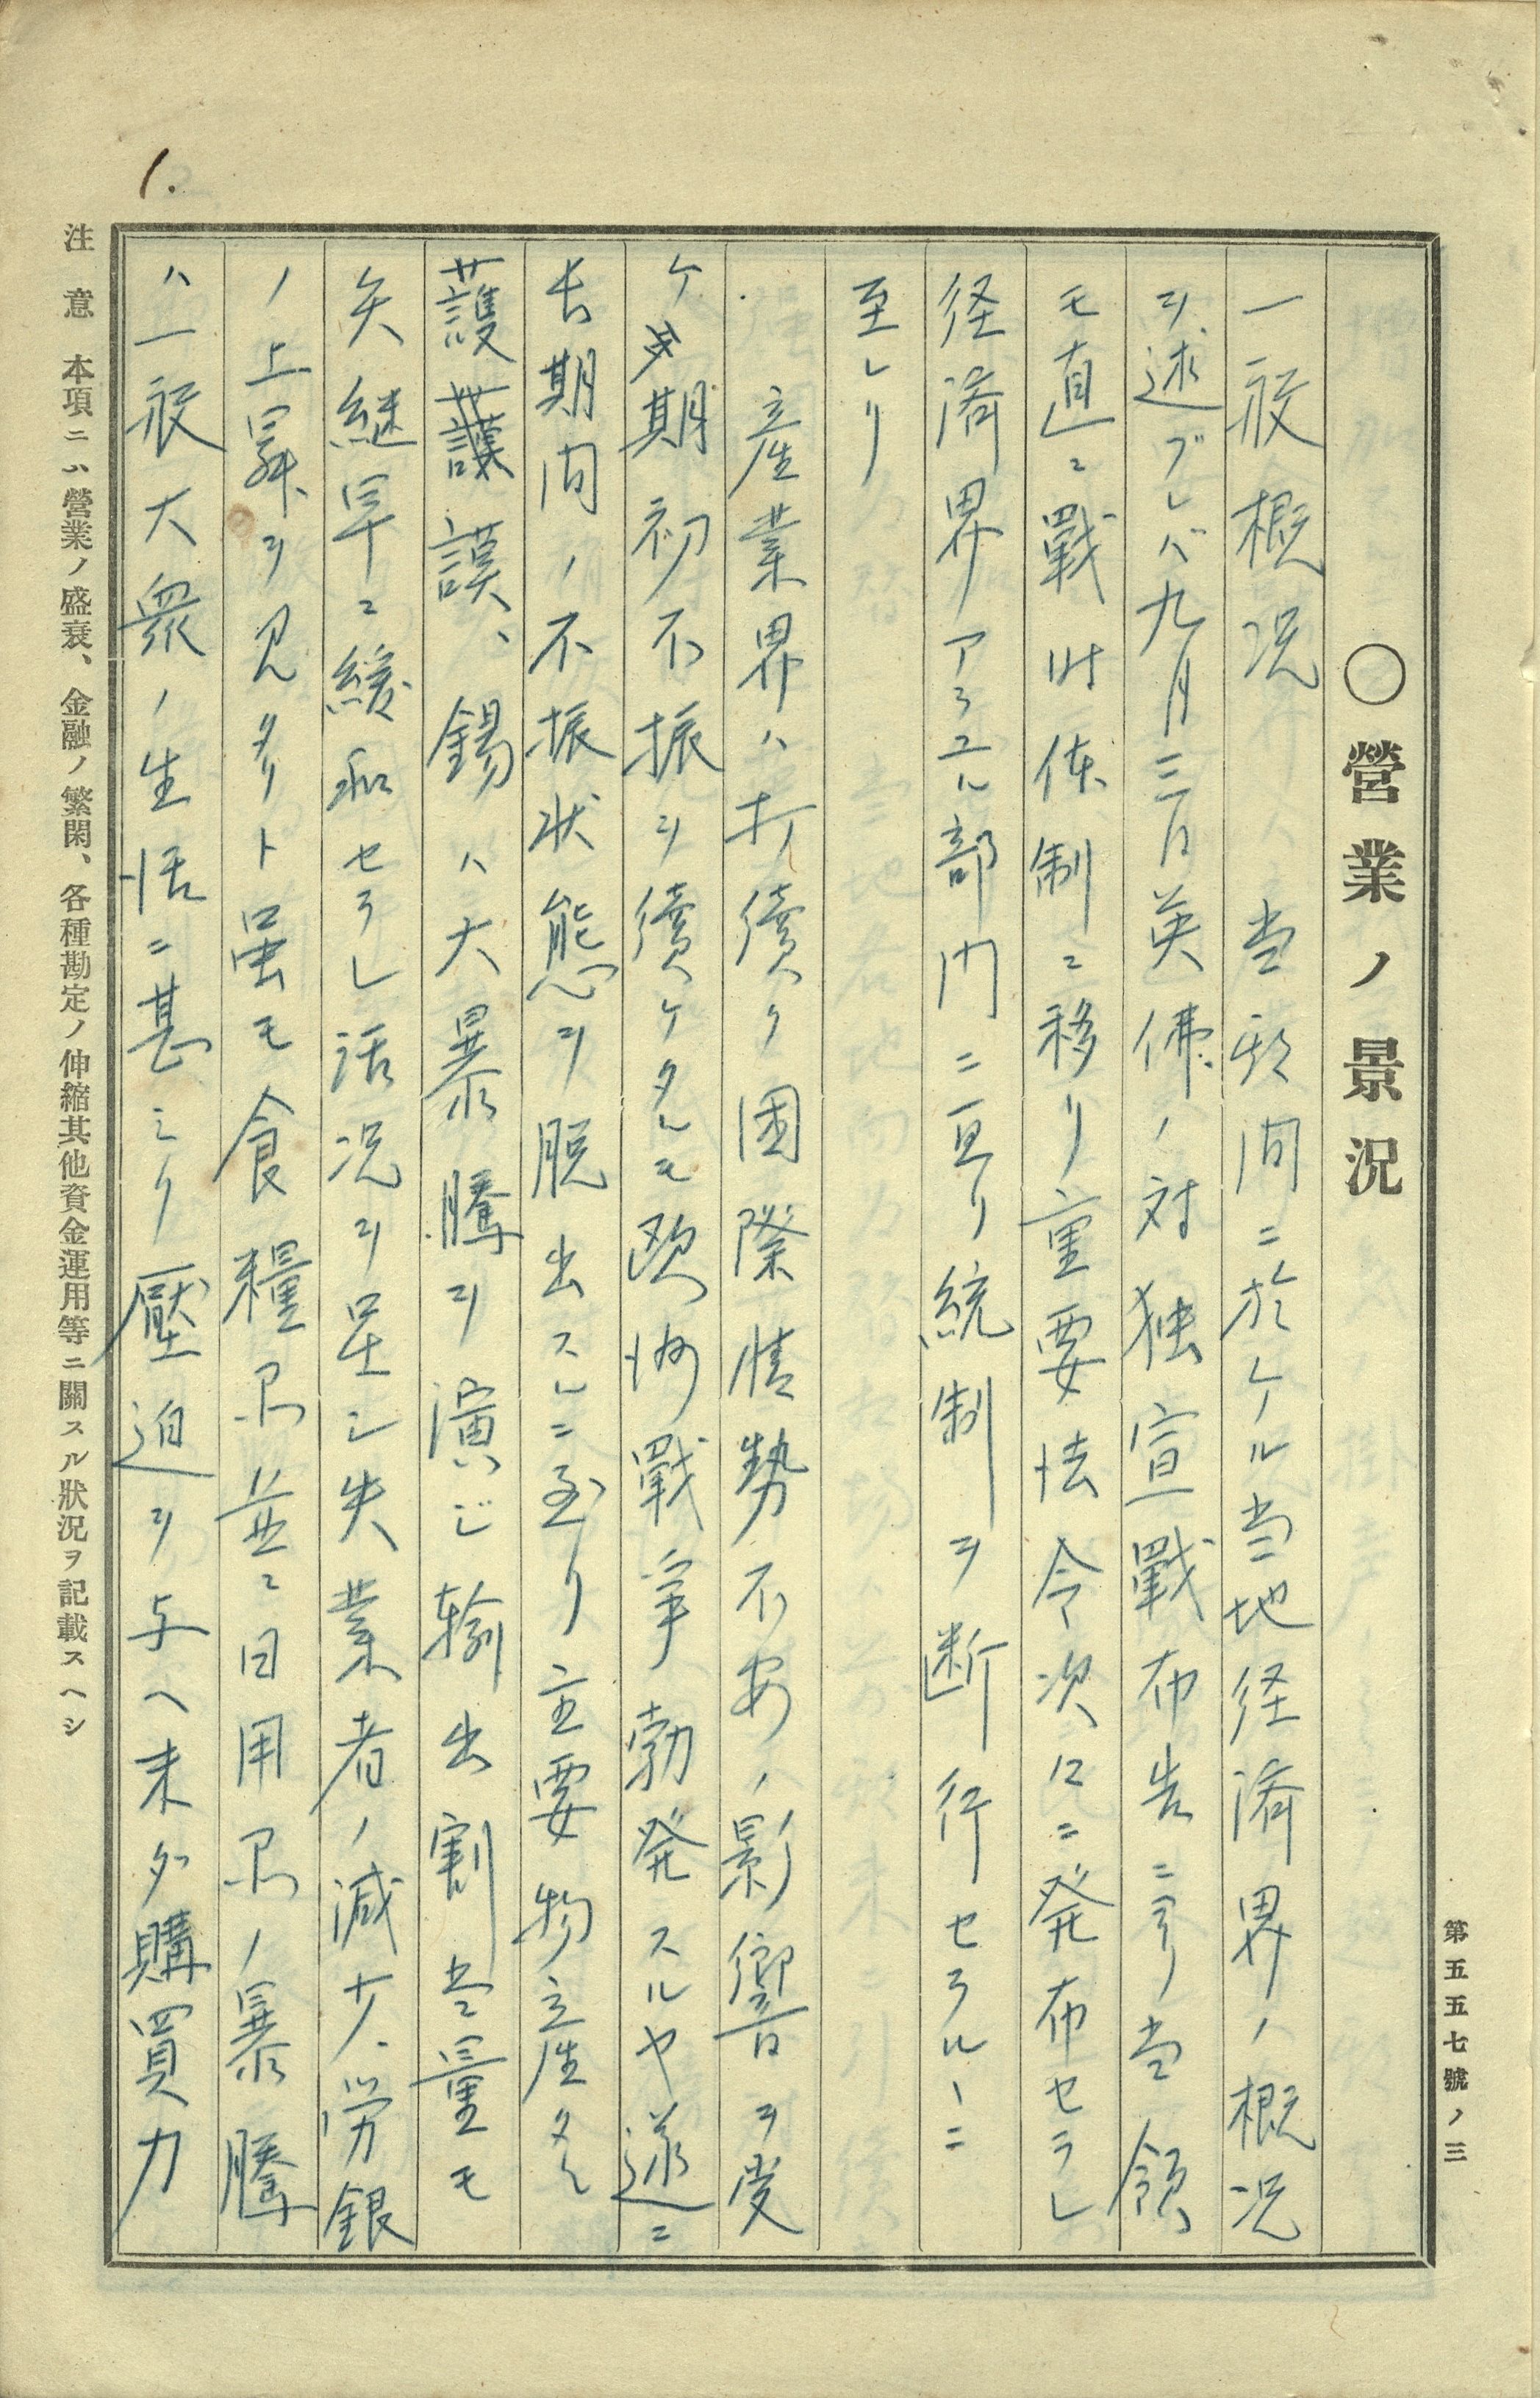 第五五七號ノ三
〇營業ノ景況
一般概況　当期間ニ於ケル当地経済界ノ概況
ヲ述ブレバ九月三日英佛ノ対独宣戰布告ニヨリ当領
モ直ニ戰时体制ニ移リ重要法令次々ニ発布セラレ
経済界アラユル部門ニ亘リ統制ヲ断行セラルヽニ
至レリ
産業界ハ打續ク國際情勢不安ノ影響ヲ受
ケ期初不振ヲ續ケタルモ欧洲戰爭勃発スルヤ遂ニ
長期间ノ不振状態ヲ脱出スルニ至リ主要物産タル
護謨、錫ハ大暴騰ヲ演ジ輸出割当量モ
矢継早ニ緩和セラレ活況ヲ呈シ失業者ノ減少、労銀
ノ上昇ヲ見タリト虽モ食糧品並ニ日用品ノ暴騰
ハ一般大衆ノ生活ニ甚シク壓迫ヲ与ヘ未ダ購買力
注意　本項ニハ營業ノ盛衰、金融ノ繁閑、各種勘定ノ伸縮其他資金運用等ニ關スル狀況ヲ記載スヘシ
1.